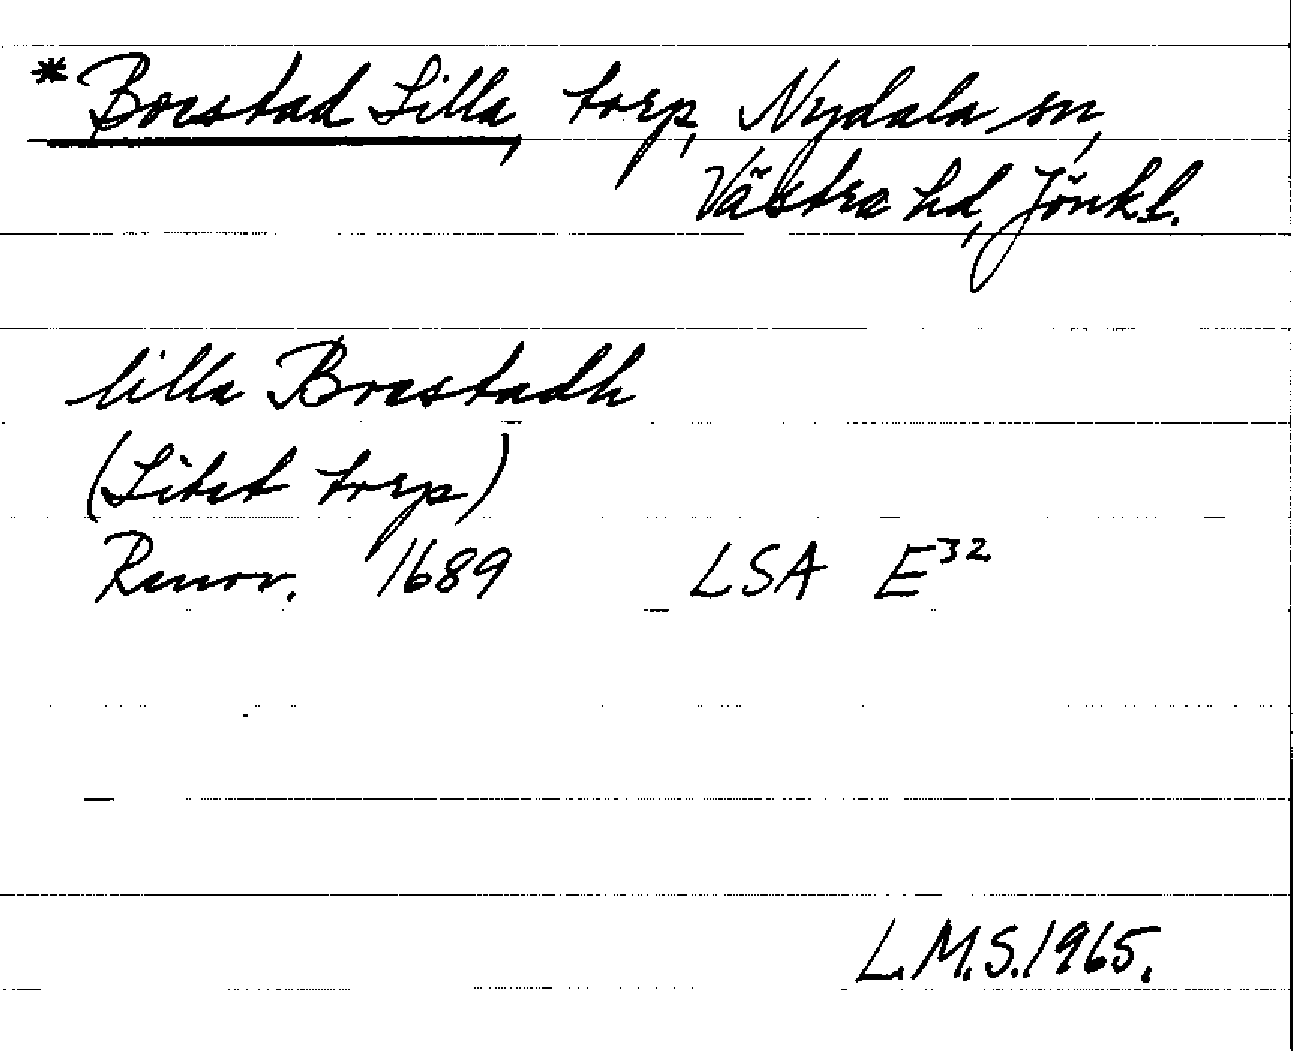 *Borstad Lilla, torp, Nydala sn,
Västra hd, Jönk.l.
lilla Borstadh
(Litet torp)
Renov. 1689 LSA E32
L.M.S. 1965.